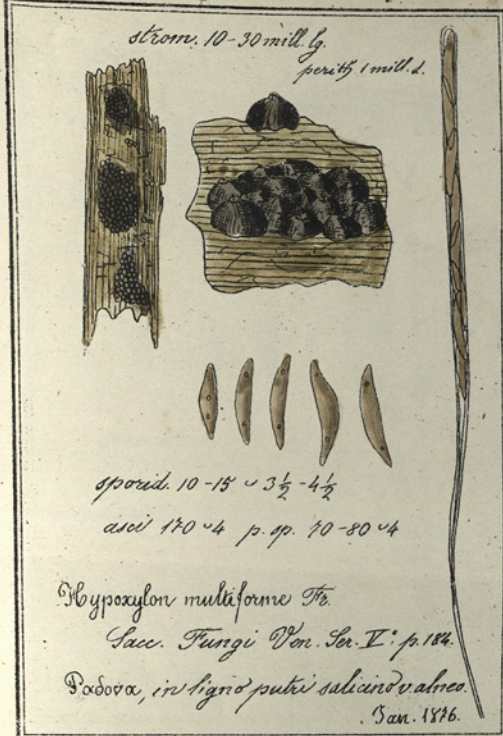 strom. 10-30 mill. lg.
perith. 1 mill. d.
sporid. 10-15 ᵕ 3½-4½
asci 170 ᵕ 4 p. sp. 70-80 ᵕ 4
Hypoxylon multiforme Fr.
Sacc. Fungi Ven. Ser. V: p. 184.
Padova, in ligno putri salicino v. alneo.
Jan. 1876.